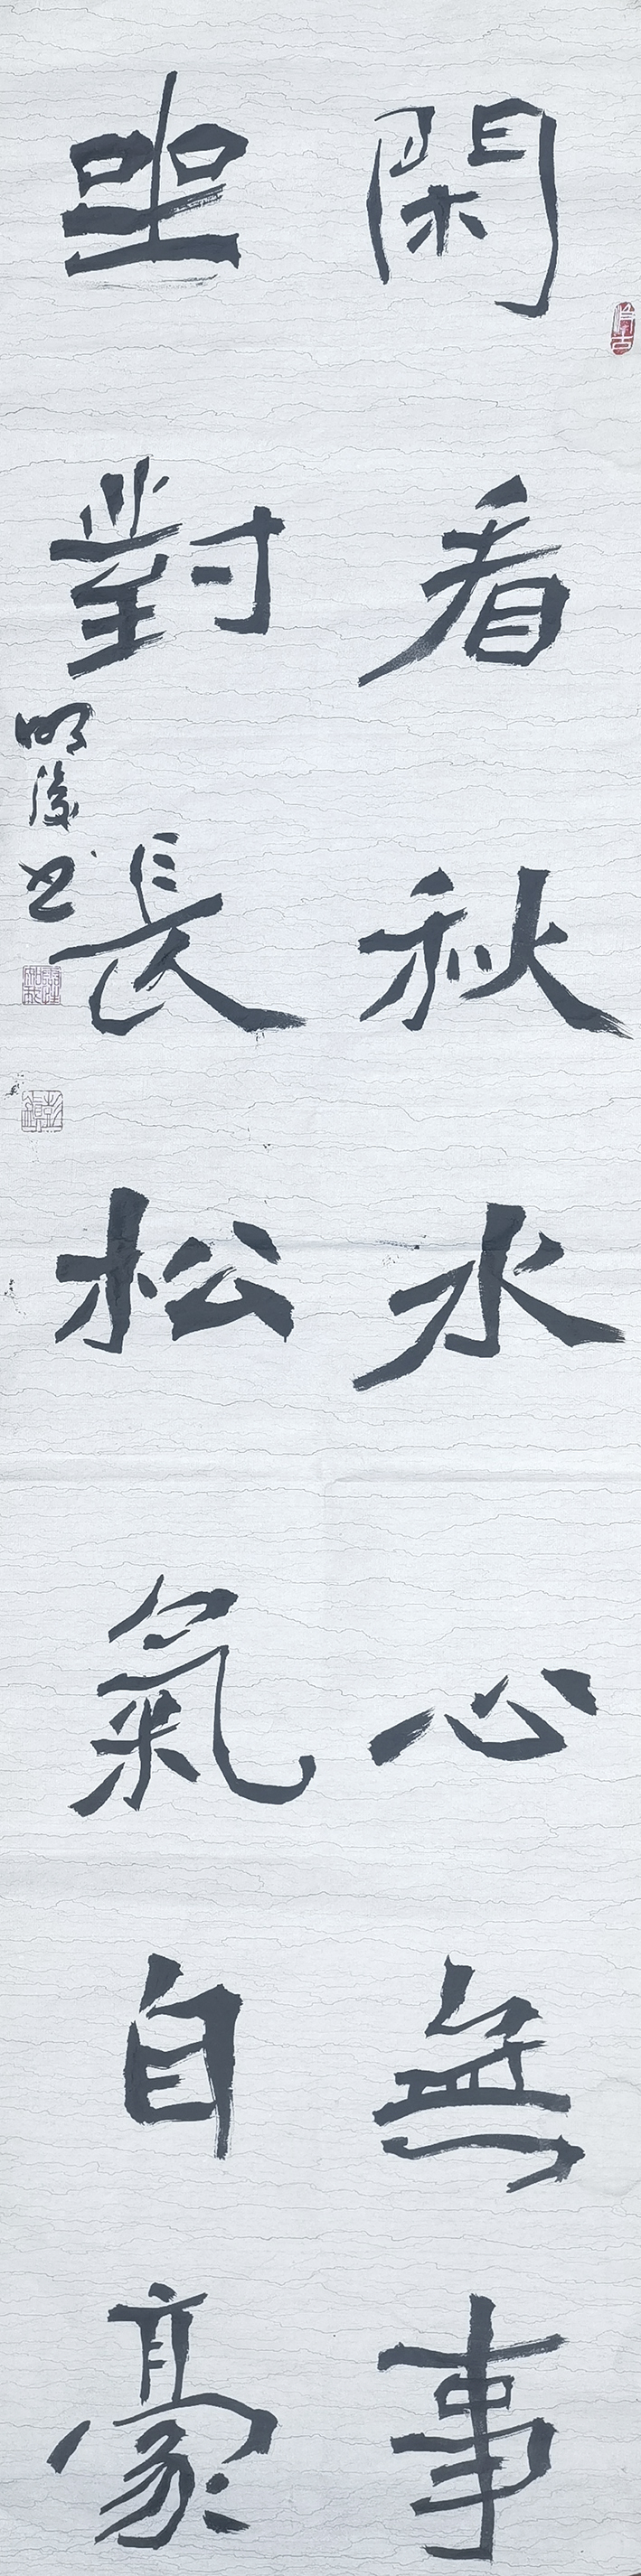 閑看秋水心無事
坐對長松氣自豪
明陵书